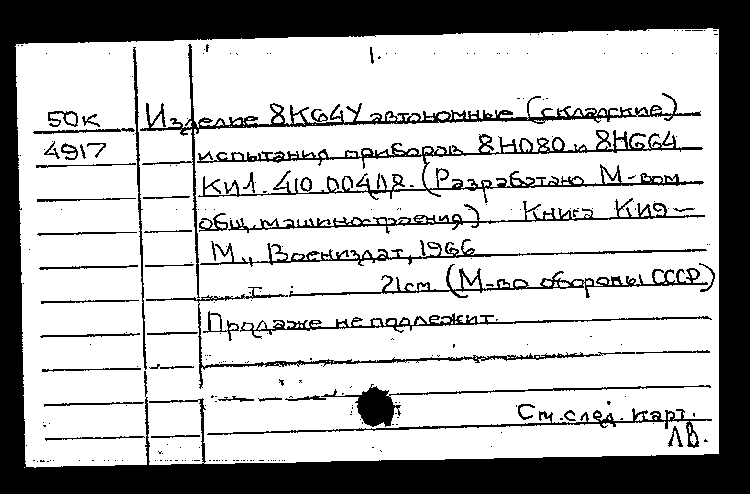 1.
50к Изделие 8К64У автономные (складские)
4917 испытания приборов 8Н080 и 8Н664
КИ1.410.004Д8. (Разработано М-вом
общ. машиностроения) Книга КИ9—
М., Воениздат, 1966
21см. (М-во обороны СССР)
Продаже не подлежит.
См. след. карт.
ЛВ.